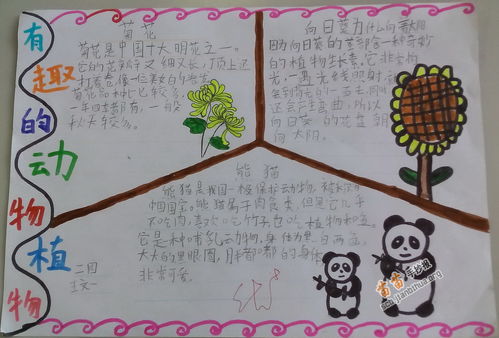 有趣的动物植物
菊花
菊花是中国十大名花之一。
它的花瓣又细又长,顶上还
打着卷像一
菊花品种比较多,
一年四季都有,一般
秋天较多。
向日葵为什么向着太阳
因为向日葵的茎部含一种奇妙
的植物生长素,它非常怕
光,一遇光线照射,
会到背光的一面去,同时
还会产生弯曲,所以
向日葵的花盘朝
向太阳。
熊猫
熊猫是我国一级保护动物,被
中国国宝。熊猫属于肉食类,但是它几乎
不吃肉,喜欢吃竹子也吃植物和
它是种哺乳动物,身体为黑白两色,
大大的黑眼圈,胖嘟嘟的身体
非常可爱。
二四
苗苗手抄报